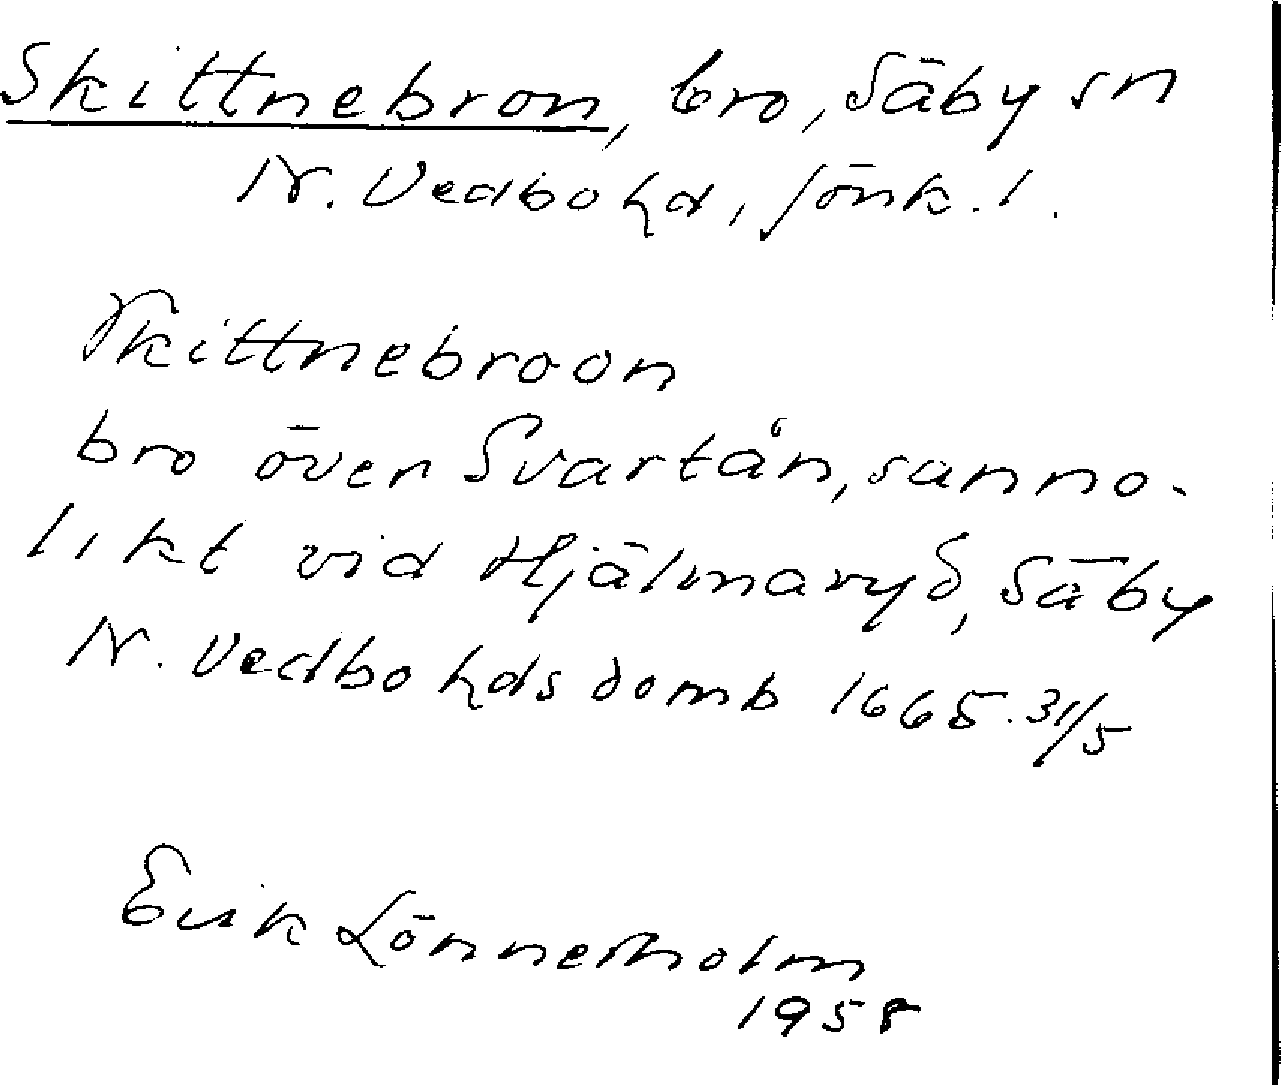 Skittnebron, bro, Säby sn
N. Vedbo hd, Jönk. l.
Skittnebroon
bro över Svartån, sanno-
likt vid Hjälmaryd, Säby
N. Vedbo hds domb 1665. 31/5
Erik Lönnerholm
1958